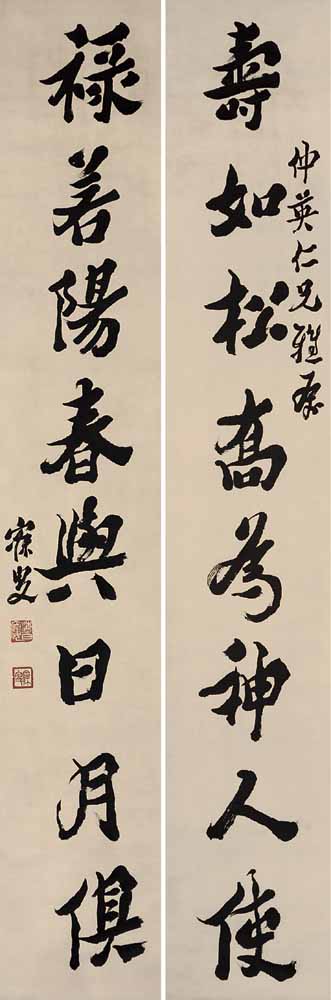 仲英仁兄雅
壽如松高為神人使
祿若陽春與日月俱
寐叟